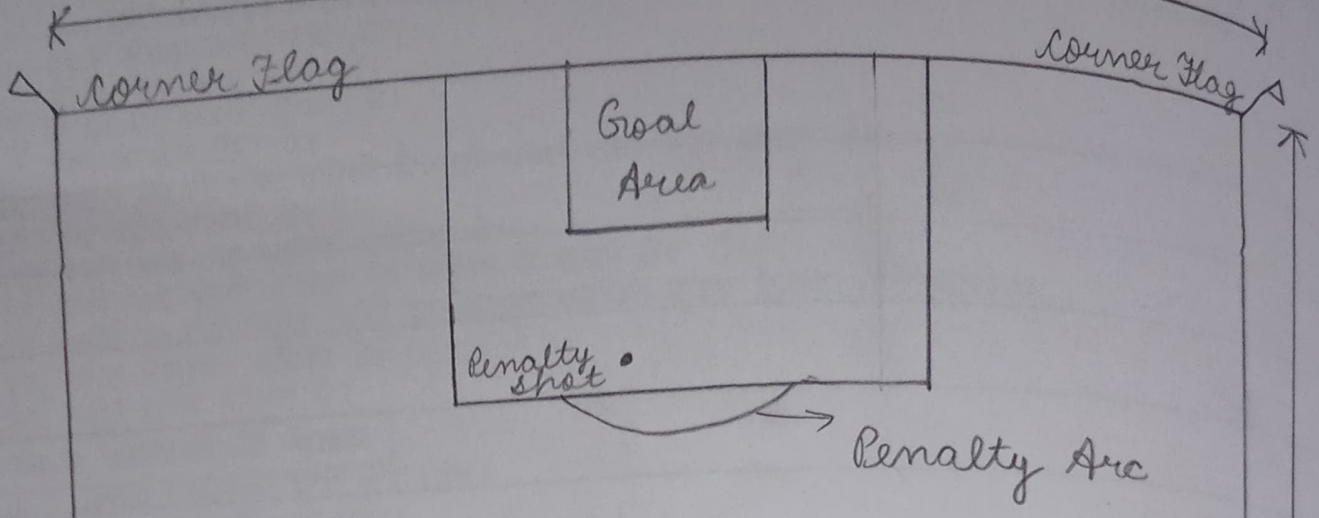 Corner Flag
Corner Flag
Goal
Area
Penalty
shot
Penalty Arc